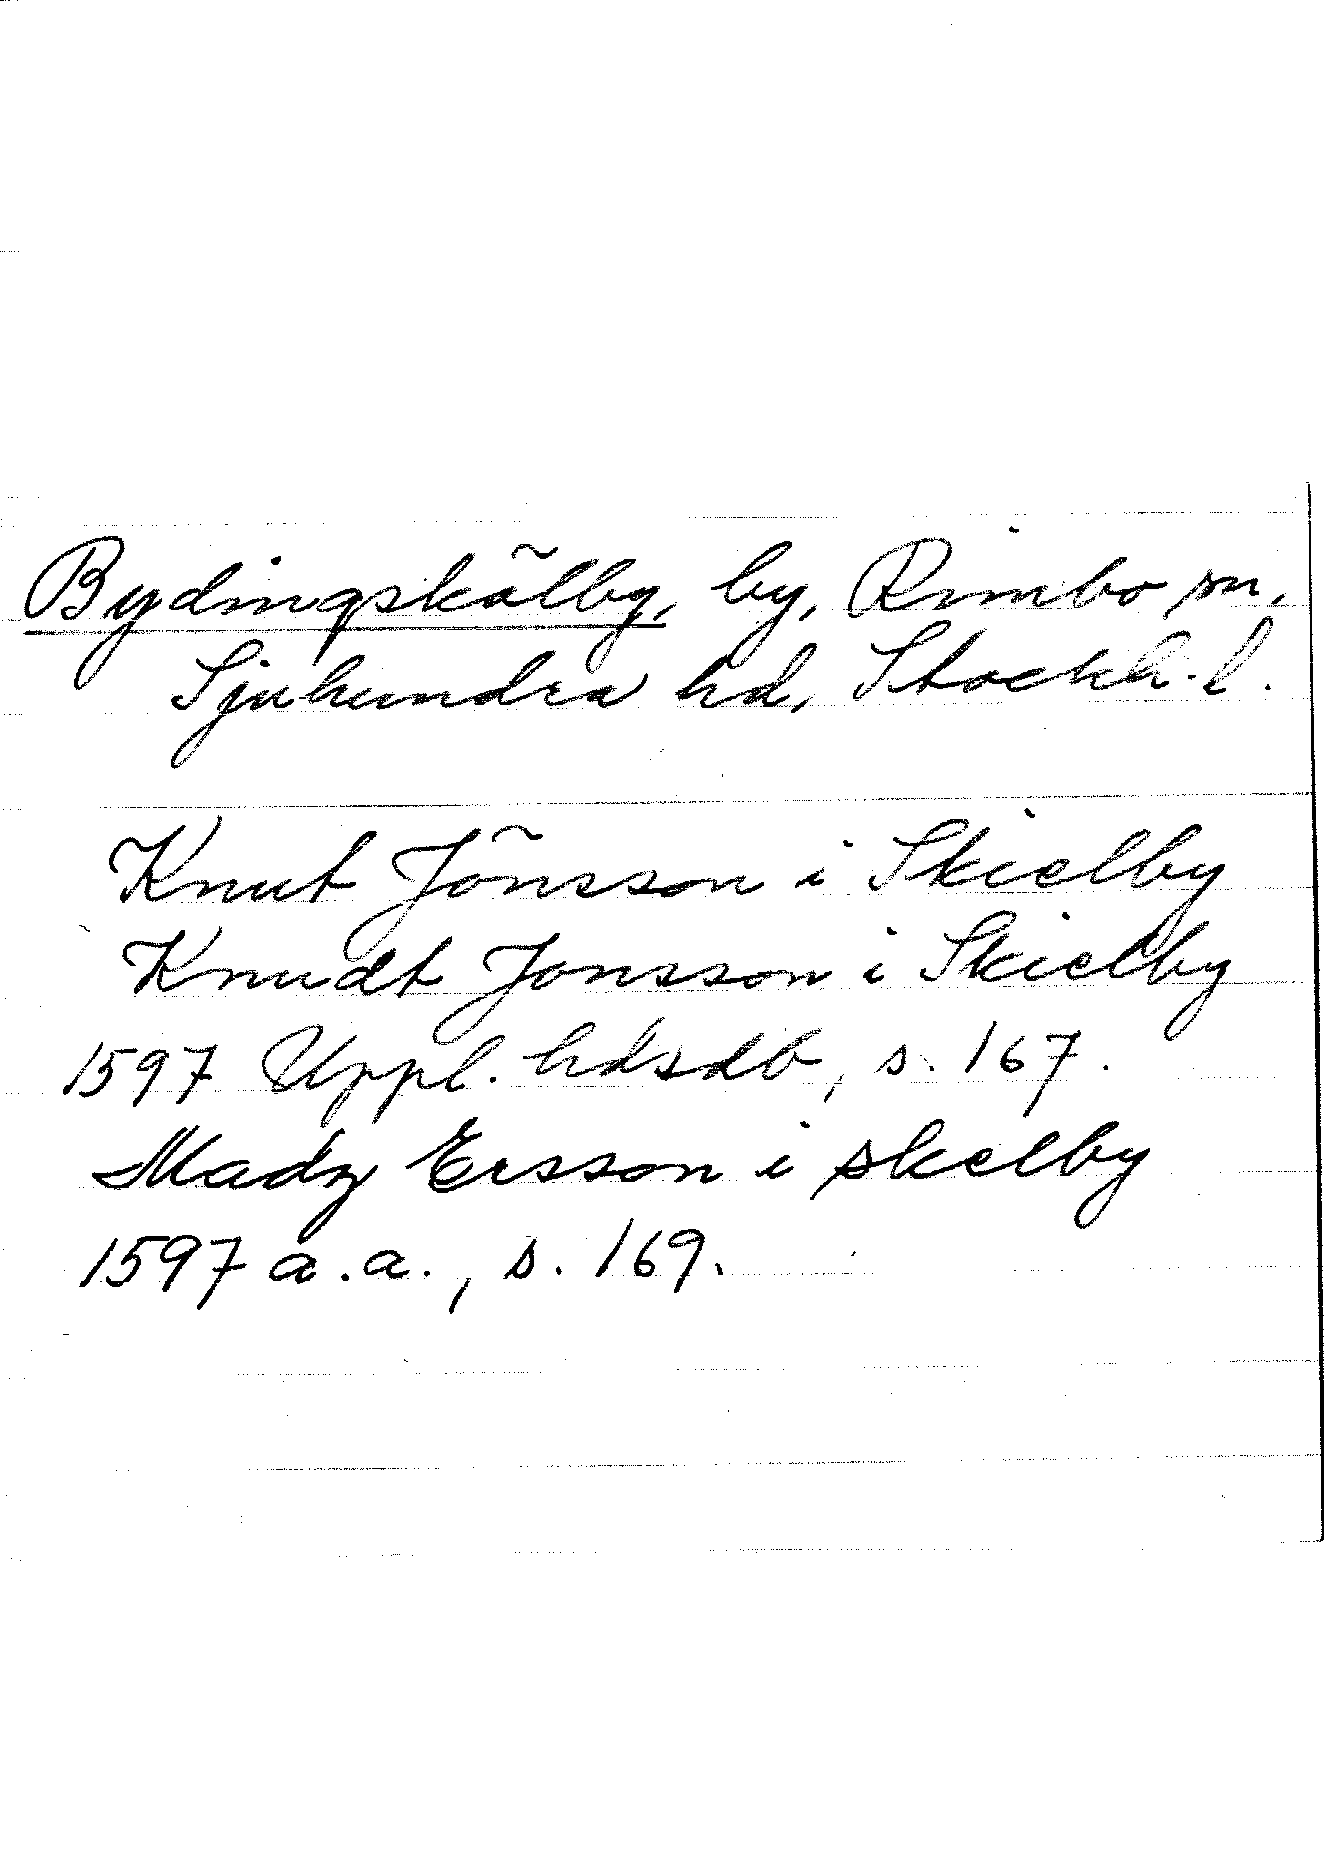 Bydingskälby, by, Rimbo sn,
Sjuhundra hd, Stockh. l.
Knut Jönsson i Skielby
Knudt Jonsson i Skielby
1597 Uppl. hdsdb, s. 167.
Madz Ersson i skelby
1597 a.a., s. 169.